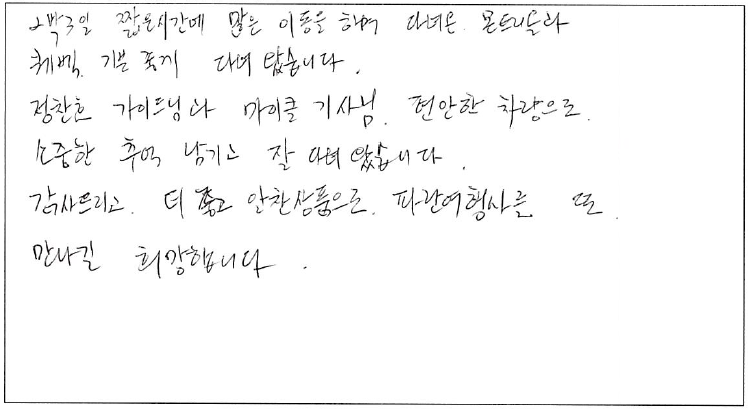 2박3일 짧은시간에 많은 이동을 하며 다녀온 몬트리올과
퀘벡 기분 좋게 다녀 왔습니다.
정찬호 가이드님과 마이클 기사님. 편안한 차량으로.
소중한 추억 남기고 잘 다녀 왔습니다.
감사드리고. 더 좋고 알찬상품으로. 파란여행사를 또.
만나길 희망합니다.